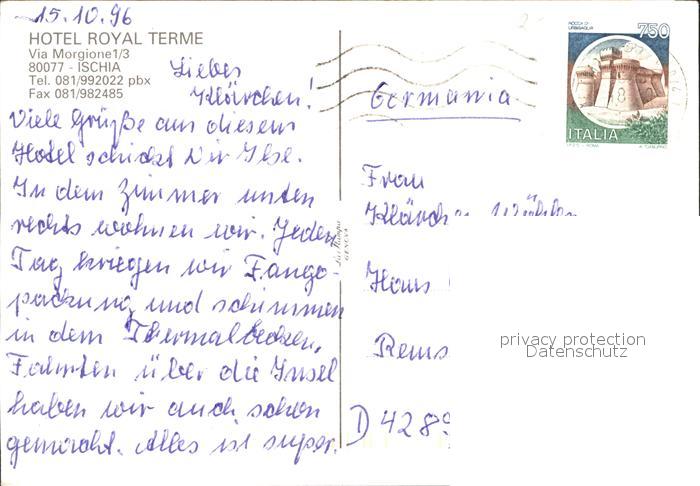 15.10.96
HOTEL ROYAL TERME
Via Morgione 1/3
80077 - ISCHIA
Tel. 081/992022 pbx
Fax 081/982485
Liebes
Klärchen!
Viele Grüße aus diesem
Hotel schickt Dir Ilse.
In dem Zimmer unten
rechts wohnen wir. Jeden
Tag kriegen wir Fango-
packung und schimmen
in dem Thermalbecken,
Fahrten über die Insel
haben wir auch schon
gemacht. Alles ist super.
ROCCA DI
URBISAGLIA
750
ITALIA
Germania
Frau
Haus
Rems
D 4289
privacy protection
Datenschutz